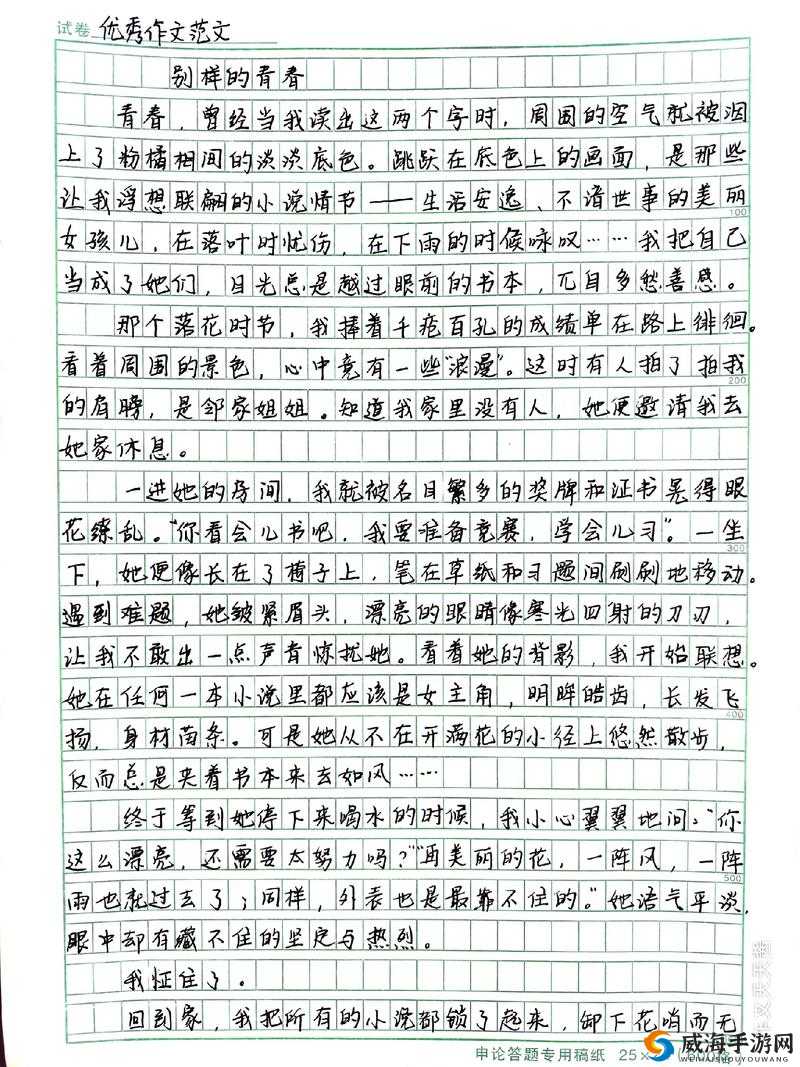 试卷 优秀作文范文
别样的青春
青春，曾经当我读出这两个字时，周围的空气就被洇
上了粉橘相间的淡淡底色。跳跃在底色上的画面，是那些
让我浮想联翩的小说情节——生活安逸、不谙世事的美丽
100
女孩儿，在落叶时忧伤，在下雨的时候咏叹……我把自己
当成了她们，目光总是越过眼前的书本，兀自多愁善感。
那个落花时节，我捧着千疮百孔的成绩单在路上徘徊。
看着周围的景色，心中竟有一些“浪漫”。这时有人拍了拍我
200
的肩膀，是邻家姐姐。知道我家里没有人，她便邀请我去
她家休息。
一进她的房间，我就被名目繁多的奖牌和证书晃得眼
花缭乱。“你看会儿书吧，我要准备竞赛，学会儿习”。一坐
300
下，她便像长在了椅子上，笔在草纸和习题间刷刷地移动。
遇到难题，她皱紧眉头，漂亮的眼睛像寒光四射的刀刃，
让我不敢出一点声音惊扰她。看着她的背影，我开始联想。
她在任何一本小说里都应该是女主角，明眸皓齿，长发飞
400
扬，身材苗条。可是她从不在开满花的小径上悠然散步，
反而总是夹着书本来去如风……
终于等到她停下来喝水的时候，我小心翼翼地问：“你
这么漂亮，还需要太努力吗？”“再美丽的花，一阵风，一阵
500
雨也就过去了；同样，外表也是最靠不住的。”她语气平淡，
眼中却有藏不住的坚定与热烈。
我怔住了。
回到家，我把所有的小说都锁了起来，卸下花哨而无
申论答题专用稿纸 25×
威海手游网